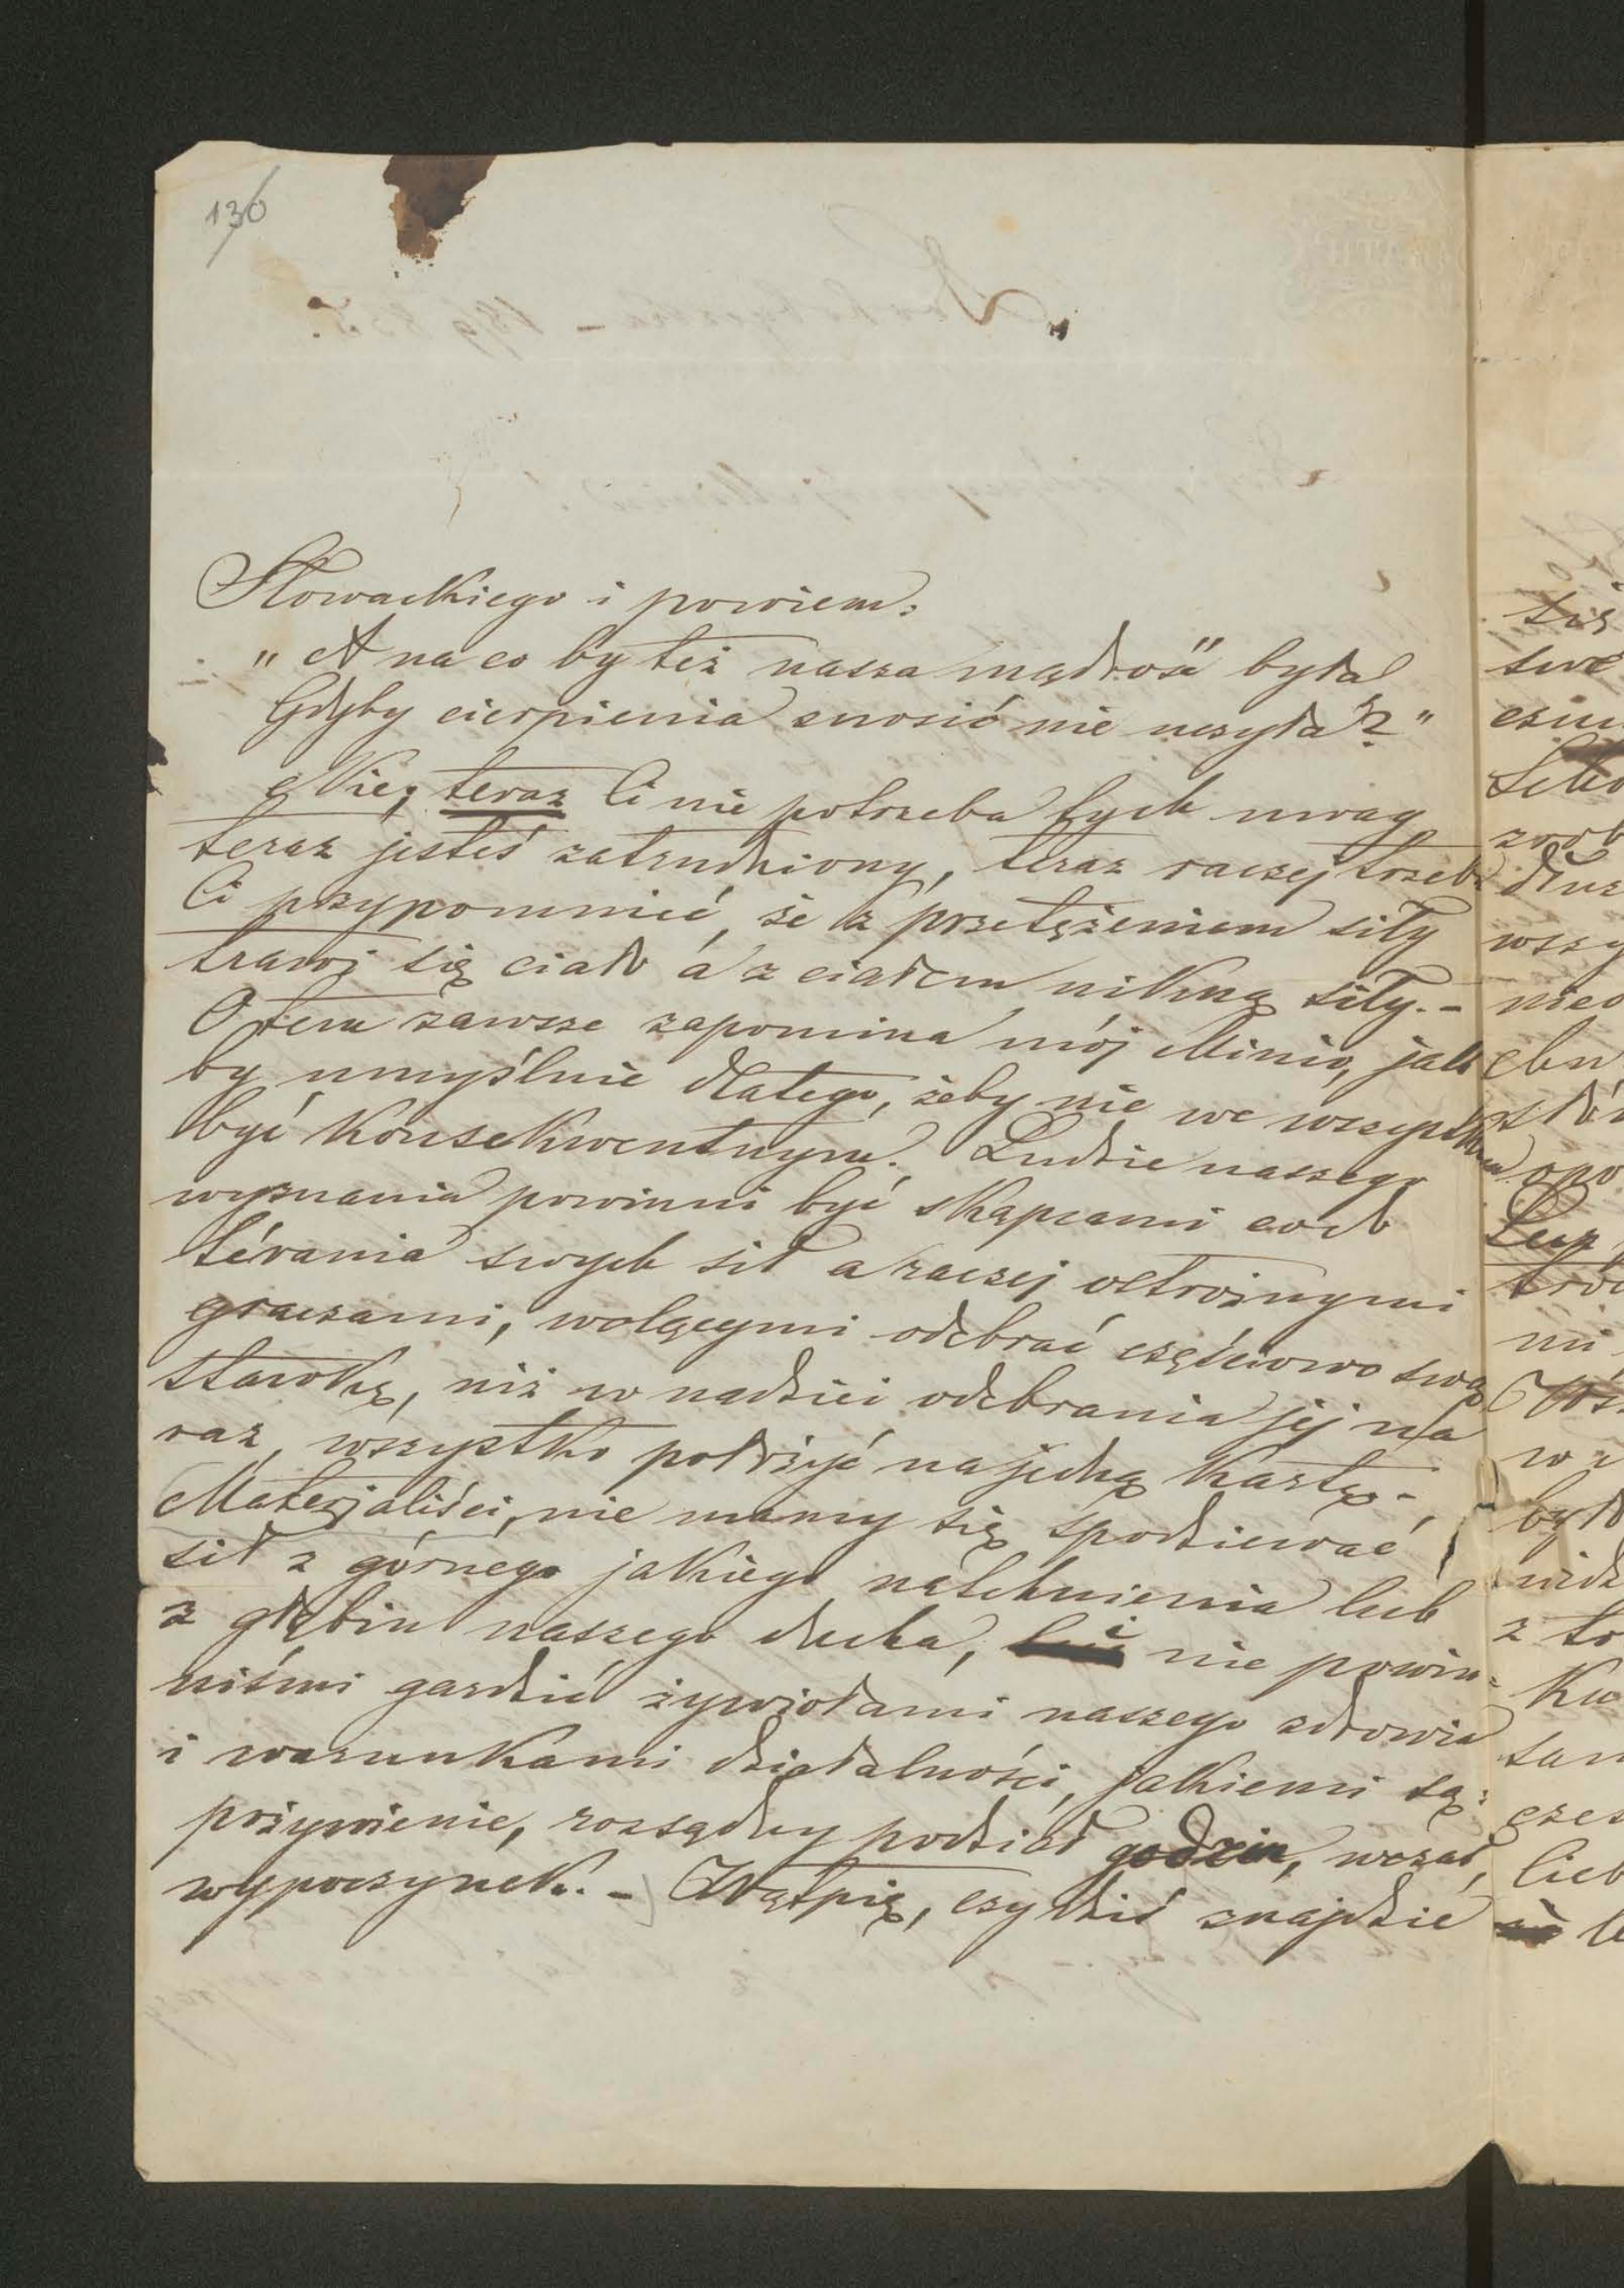 136
Słowackiego i powiem:
„A na co by też nasza mądrość była
Gdyby cierpienia znosić nie uczyła?"
Nie, teraz Ci nie potrzeba tych uwag
teraz jesteś zatrudniony, teraz raczej trzeba
Ci przypomnieć, że z przetężeniem siły
trawi się ciało a z ciałem nikną siły. –
O tem zawsze zapomina mój Minio, jak
by umyślnie dlatego, żeby nie we wszystkiem
być konsekwentnym. Ludzie naszego
wyznania powinni być skąpcami co do
térania swych sił a raczej ostrożnymi
graczami, wolącymi odebrać częściowo swą
stawkę, niż w nadziei odebrania jej na
raz, wszystko położyć na jedną kartę. –
Materjaliści, nie mamy się spodziewać
sił z górnego jakiego natchnienia lub
z głębin naszego ducha, nie powin=
niśmi gardzić żywiołami naszego zdrowia
i warunkami działalności, jakiemi są:
pożywienie, rozsądny podział godzin, wczas,
wypoczynek. – Wątpię, czy dziś znajdzie